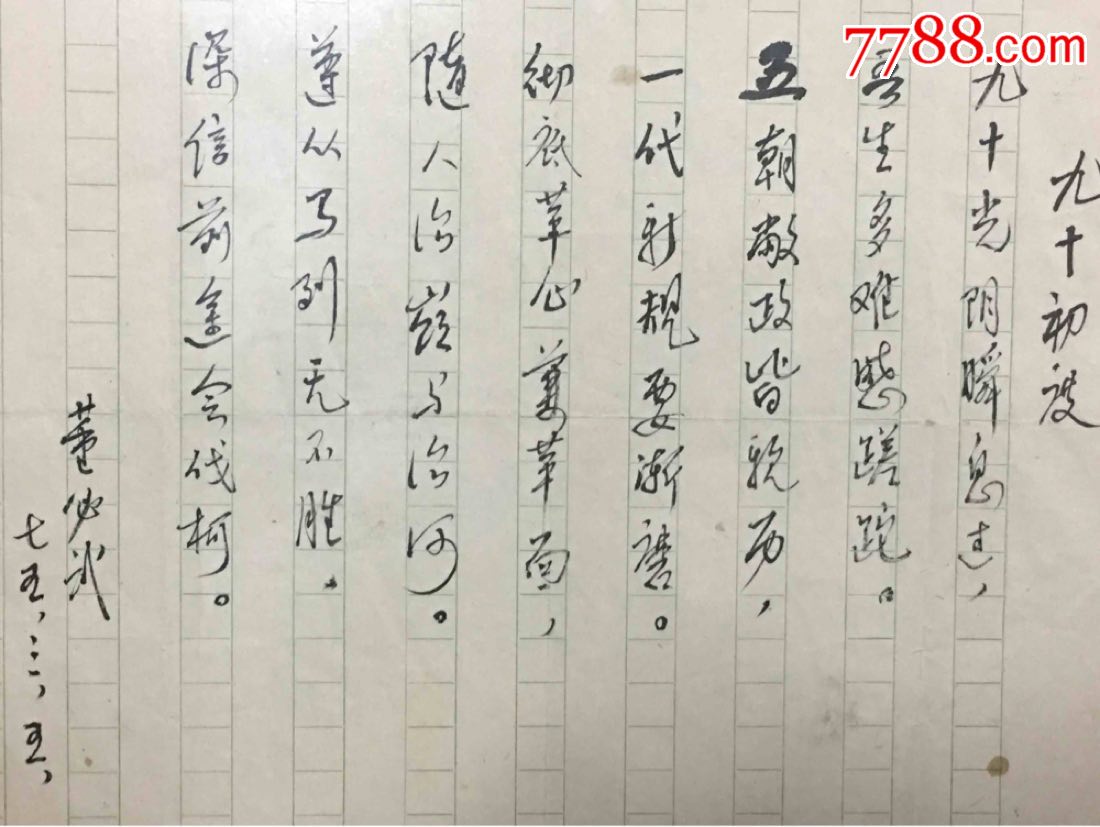 7788.com
九十初度
九十光阴瞬息过，
吾生多难感蹉跎。
五朝敝政皆亲历，
一代新规要渐磨。
彻底革心兼革面，
随人治岭与治河。
遵从马列无不胜，
深信前途会伐柯。
董必武
七五，三，五，